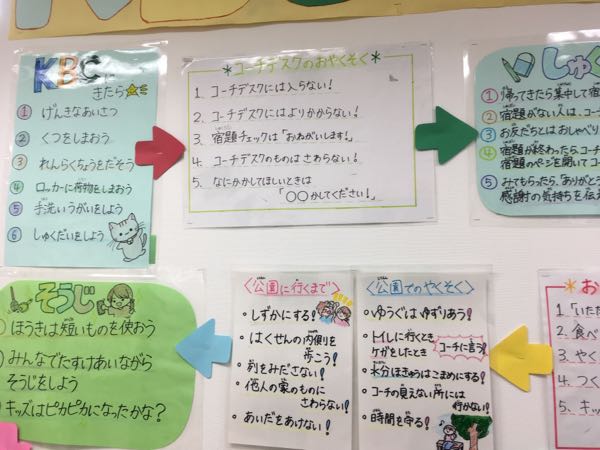 KBCに
きたら
① げんきなあいさつ
② くつをしまおう
③ れんらくちょうをだそう
④ ロッカーに荷物をしまおう
⑤ 手洗いうがいをしよう
⑥ しゅくだいをしよう
*コーチデスクのおやくそく*
1. コーチデスクには入らない!
2. コーチデスクにはよりかからない!
3. 宿題チェックは「おねがいします!」
4. コーチデスクのものはさわらない!
5. なにかかしてほしいときは
「○○かしてください!」
しゅく
① 帰ってきたら集中して宿
② 宿題がない人は、コー
③ お友だちとはおしゃべり
④ 宿題が終わったらコーチ
宿題のページを開いてコー
⑤ みてもらったら、「ありがとう
感謝の気持ちを伝え
そうじ
ほうきは短いものを使おう
みんなでたすけあいながら
そうじをしよう
キッズはピカピカになったかな?
〈公園に行くまで〉
・しずかにする!
・はくせんの内側を
歩こう!
・列をみださない!
・他人の家のものに
さわらない!
・あいだをあけない!
〈公園でのやくそく〉
・ゆうぐは ゆずりあう!
・トイレに行くとき
ケガをしたとき
コーチに言う!
・水分ほきゅうはこまめにする!
・コーチの見えない所には
行かない!
・時間を守る!
*お
1.「いただ
2. 食べ
3. やく
4. つく
5. キッ